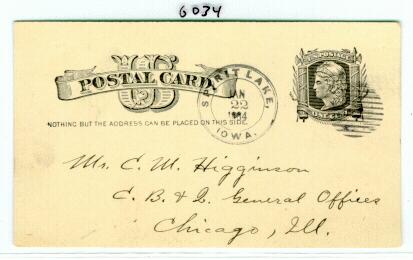 6034
US
POSTAL CARD
NOTHING BUT THE ADDRESS CAN BE PLACED ON THIS SIDE.
SPIRIT LAKE,
JAN
22
1884
IOWA.
U.S. POSTAGE
ONE CENT
Mr. C. M. Higginson
C. B & Q. General Offices
Chicago, Ill.